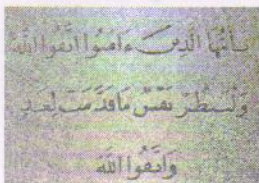 يٰأَيُّهَا الَّذِينَ ءَامَنُوا اتَّقُوا اللَّهَ
وَلْتَنظُرْ نَفْسٌ مَا قَدَّمَتْ لِغَدٍ
وَاتَّقُوا اللَّهَ